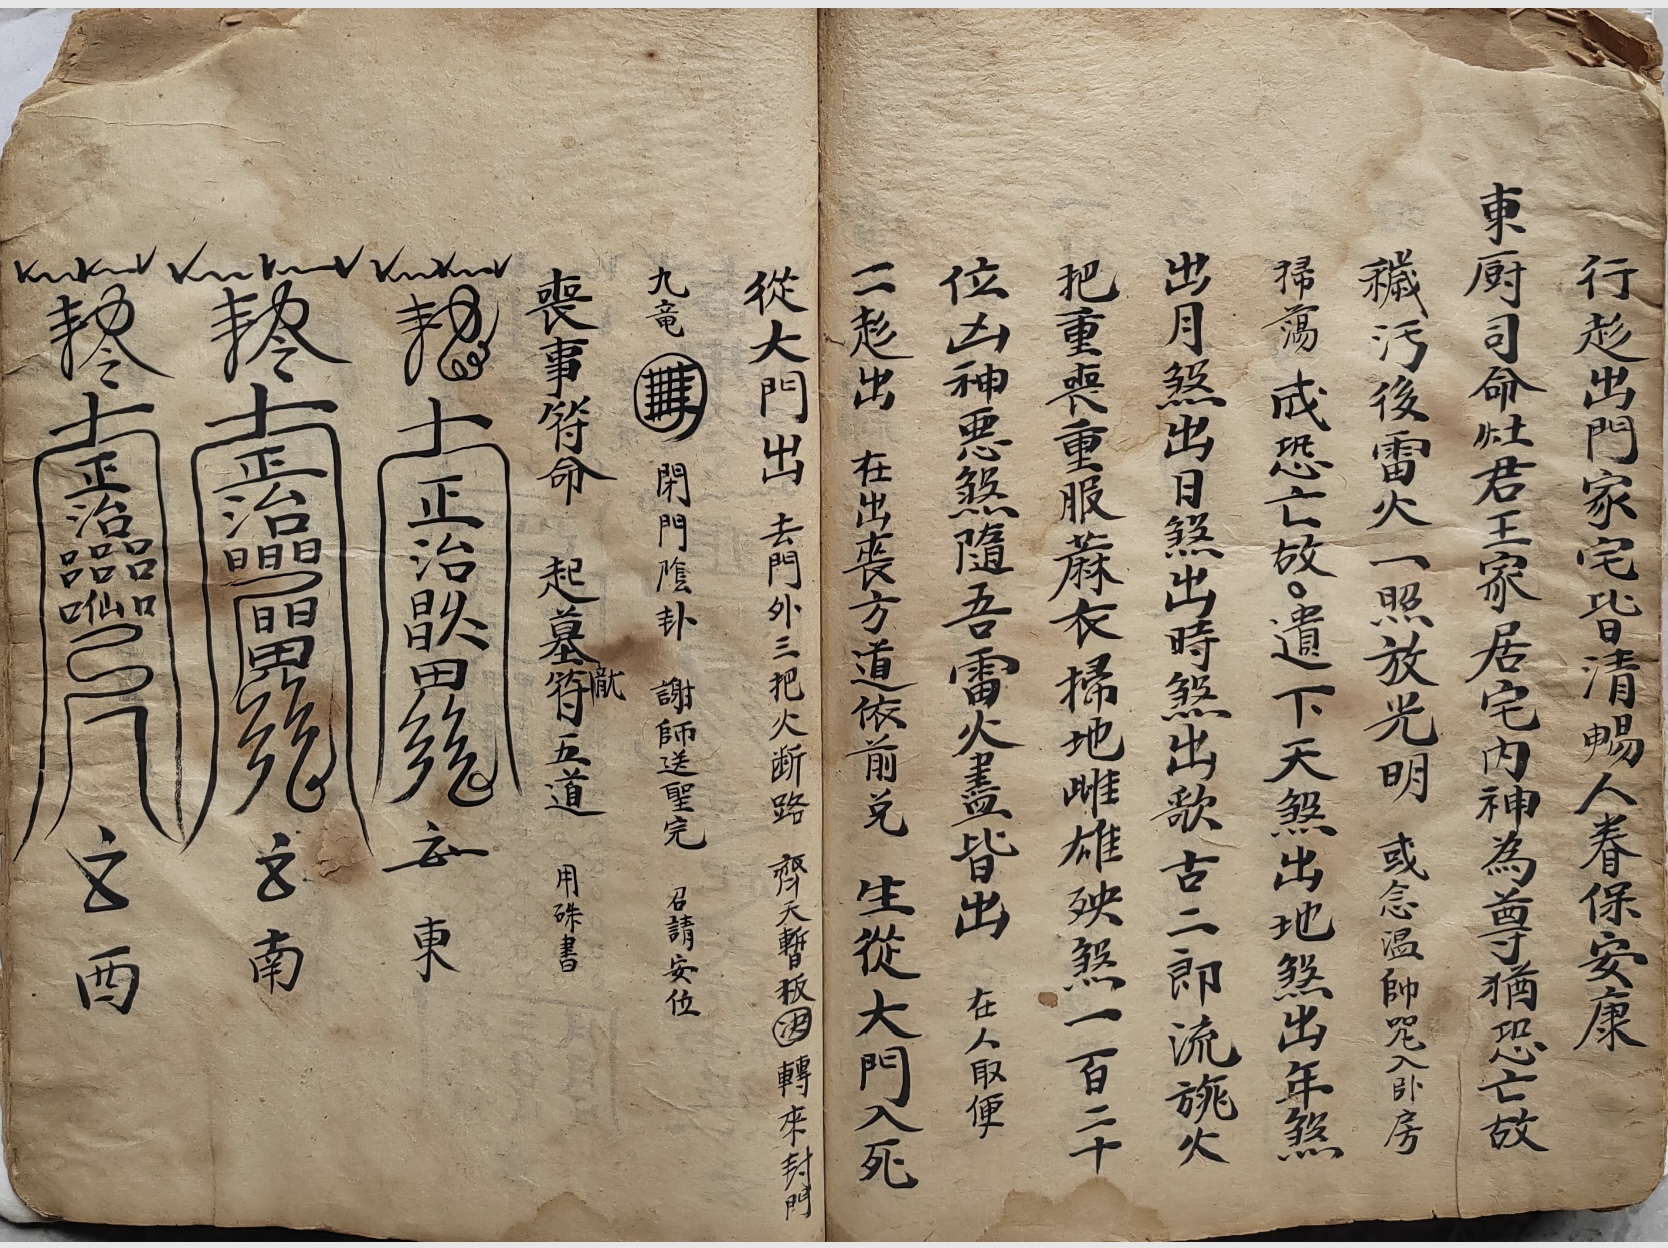 行趂出門家宅皆清暢人眷保安康
東厨司命灶君王家居宅内神為尊猶恐亡故
穢汚後雷火一照放光明 或念温帥咒入卧房
掃蕩 或恐亡故。遺下天煞出地煞出年煞
出月煞出日煞出時煞出歌古二郎流旎火
把重喪重服蔴衣掃地雌雄殃煞一百二十
位凶神悪煞隨吾雷火盡皆出 在人取便
一趂出 在出喪方道依前兑 生從大門入死
從大門出 去門外三把火断路 齊天暫板 轉來封門
九竜 閉門陰卦 謝師送聖完 召請安位
喪事符命 起墓符五道 用硃書
正治 田 東
正治 南
正治 西